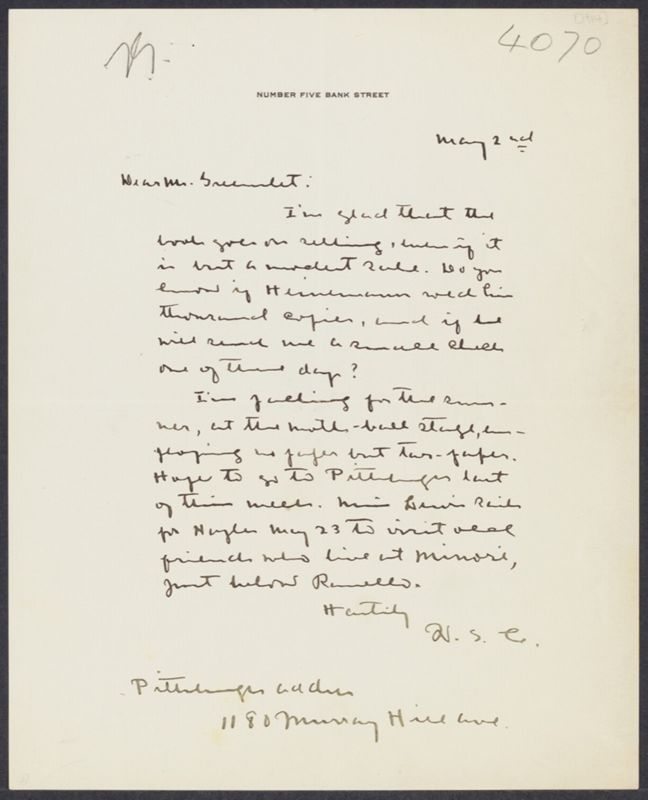 4070
NUMBER FIVE BANK STREET
May 2nd
Dear Mr. Greenslet:
I'm glad that the
book goes on selling, even if it
is but a modest sale. Do you
know if Heinemann sold his
thousand copies, and if he
will send me a small check
one of these days?
I'm packing for the sum-
mer, at the moth-ball stage, em-
ploying no paper but tar-paper.
Hope to go to Pittsburgh last
of this week. Miss Lewis sails
for Naples May 23 to visit old
friends who live at Minori,
just below Ravello.
Hastily
W. S. C.
Pittsburgh address
1180 Murray Hill ave.